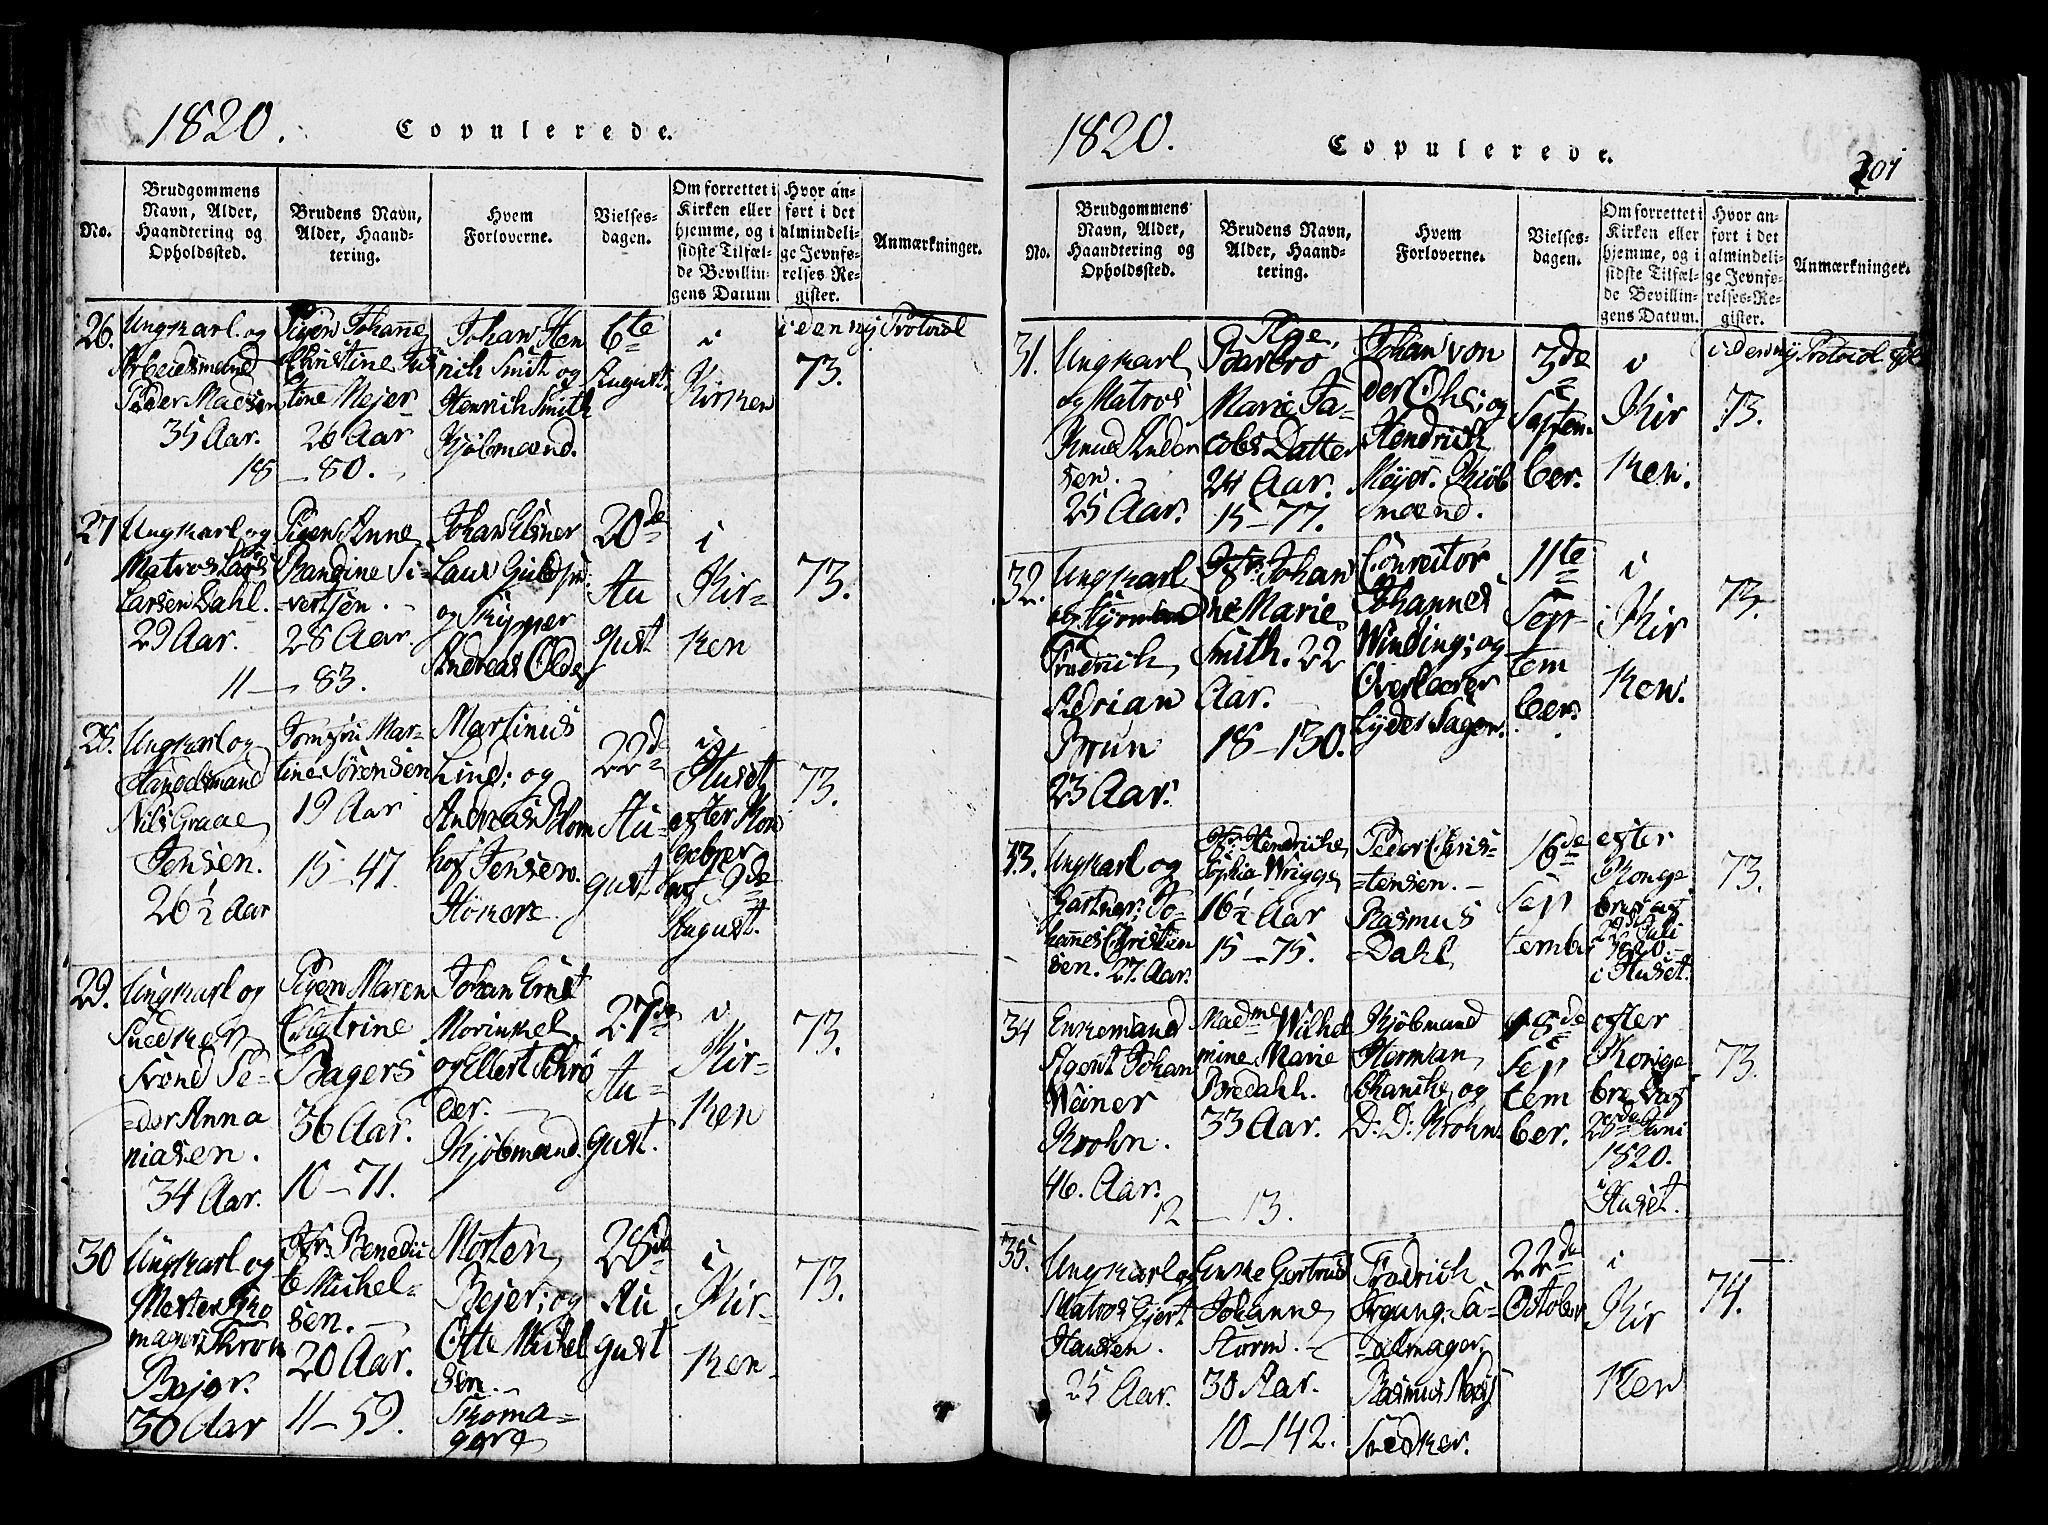 1820. Copulerede.
No.
Brudgommens
Navn, Alder,
Haandtering og
Opholdssted.
Brudens Navn,
Alder, Haand-
tering.
Hvem
Forloverne.
Vielses-
dagen.
Om forrettet i
Kirken eller
hjemme, og i
sidste Tilfæl-
de Bevillin-
gens Datum
Hvor an-
ført i det
almindeli-
ge Jevnfø-
relses-Re-
gister.
Anmærkninger.
26.
Ungkarl og
Arbeidsmand
Peder Madsen
35 Aar.
Pigen Johanne
Christine
tine Mejer
26 Aar
18 — 80.
Johan Hen
rich Smit og
Henrich Smith
Kjøbmænd.
6te
August
i
Kirken
i den ny Protocol
73.
27
Ungkarl og
Matros Lars
Larsen Dahl.
29 Aar.
Pigen Anne
Randine Si-
vertsen.
28 Aar.
11 — 83.
Johan Elsner
og Skipper
Andreas
20de
Au
gust
i
Kir-
ken
73.
28.
Ungkarl og
Handelsmand
Nils Graae
Jensen.
26½ Aar
Jomfru Mar-
tine Sörensen
19 Aar
15 — 47.
Martinus
Lind; og
Andreas Blom
hof Jensen.
Hökere
22de
Au-
gust
i
Huset
efter Kon
gebrev
af 9de
August.
73.
29.
Ungkarl og
Snedker
Svend Pe-
der Anna
niasen.
34 Aar.
Pigen Maren
Catrine
Bagers
36 Aar.
10 — 71.
Johan Ernst
Morinkel
og Ellert Schrö
der.
Kjöbmænd.
27de
Au-
gust.
i
Kir-
ken
73.
30
Ungkarl og
Mester Sko
mager
Bejer.
30 Aar
Jfr. Benedic
te Michel-
sen.
20 Aar.
11 — 59.
Morten
Bejer; og
Otte Michel
sen.
Skoma-
gere
28de
Au
gust
i
Kir-
ken
73.
1820. Copulerede.
201
No.
Brudgommens
Navn, Alder,
Haandtering og
Opholdssted.
Brudens Navn,
Alder, Haand-
tering.
Hvem
Forloverne.
Vielses-
dagen.
Om forrettet i
Kirken eller
hjemme, og i
sidste Tilfæl-
de Bevillin-
gens Datum.
Hvor an-
ført i det
almindeli-
ge Jevnfø-
relses-Re-
gister.
Anmærkninger.
31.
Ungkarl
og Matros
Knud Ander
sen.
25 Aar.
Pge.
Barbro
Marie Ja-
cobs Datter
24 Aar.
15 — 77.
Johan von
der Ohe; og
Hendrich
Meyer. Kiöb
mænd.
3de
Septem-
ber.
i
Kir
ken.
i den ny Protocol
73.
32.
Ungkarl
og Styrmand
Fredrich
Adrian
Brun
23 Aar.
Jfr. Johan
ne Marie
Smith. 22
Aar.
18 — 130.
Conrector
Johannes
Winding; og
Overlærer
Lyder Sagen.
11te
Sep-
tem
ber.
i
Kir
ken.
73.
33.
Ungkarl og
Gartner: Jo-
hannes Christian
sen. 27. Aar.
Jfr. Hendriche
Sophia Wrigge
16½ Aar
15 — 75.
Peder Chris-
tensen.
Rasmus
Dahl
16de
Sep
tember
efter
Konge
brev af
1820.
i Huset.
73.
34
Enkemand
Agent Johan
Weiner
Krohn.
46. Aar.
Madme Wilhel
mine Marie
Bredahl.
33 Aar.
12 — 13.
Kjöbmænd
Herman
Schanche og
D: D: Krohn
18de
Sep
tem
ber.
efter
Konge
brev af
Juni
1820.
i
Huset.
73.
35.
Ungkarl og
Matros Gjert
Hansen.
25 Aar.
Enke Gertrud
Johanne
Storm.
30 Aar.
10 — 142.
Fredrich
Irgung. Sa-
delmager.
Rasmus
Snedker.
22de
October
i
Kir
ken
74.